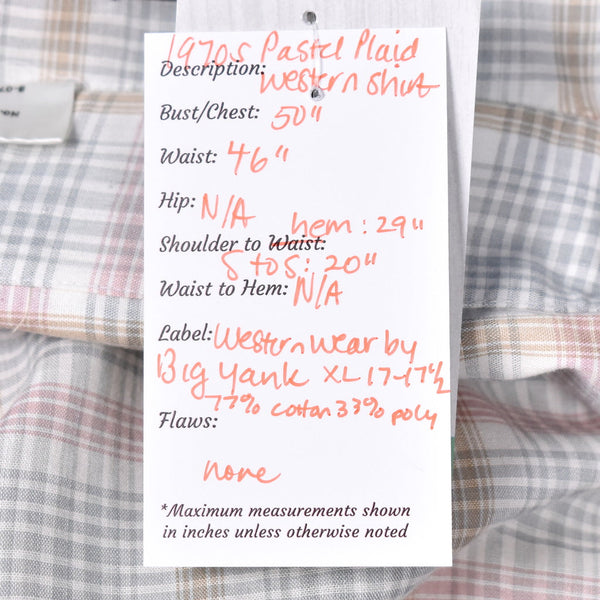 1970s Pastel Plaid
Description: Western Shirt
Bust/Chest: 50"
Waist: 46"
Hip: N/A
hem: 29"
Shoulder to Waist:
S to S: 20"
Waist to Hem: N/A
Label: Western Wear by
Big Yank XL 17-17 1/2
77% cotton 33% poly
Flaws:
none
*Maximum measurements shown
in inches unless otherwise noted